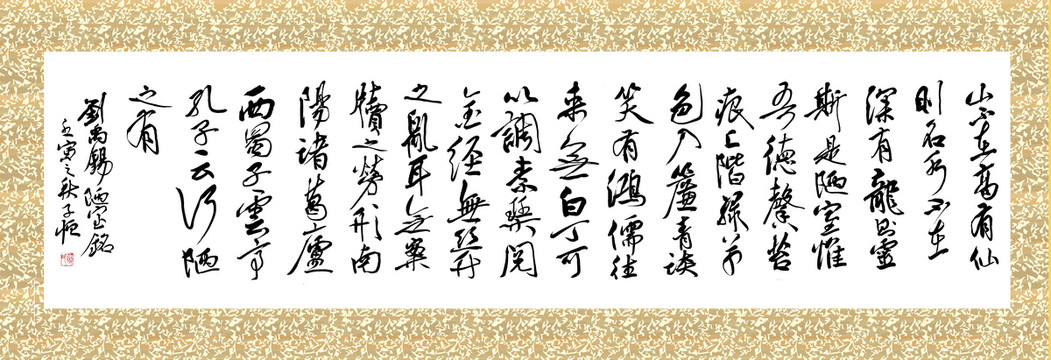 山不在高有仙
則名水不在
深有龍則靈
斯是陋室惟
吾德馨苔
痕上階綠草
色入簾青談
笑有鴻儒往
来無白丁可
以調素琴閱
金經無絲竹
之亂耳無案
牘之勞形南
陽諸葛廬
西蜀子雲亭
孔子云何陋
之有
劉禹錫陋室銘
壬寅之秋子恒